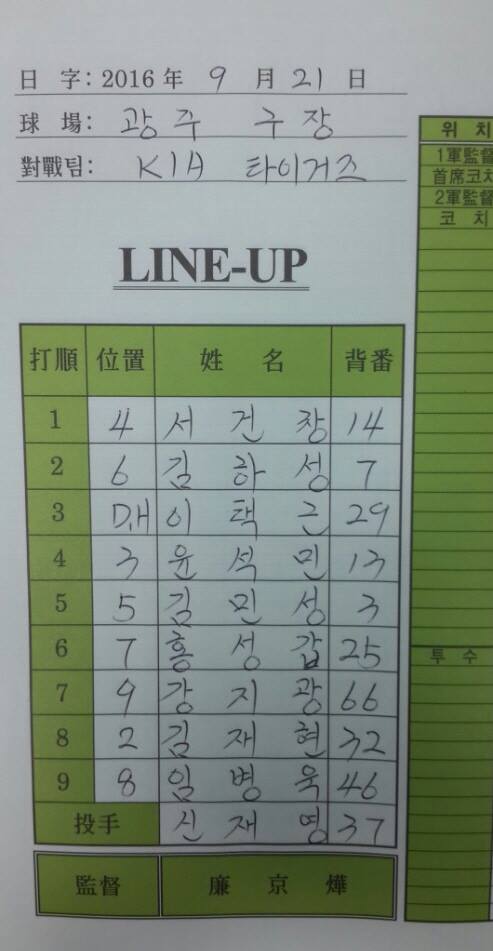 日 字: 2016 年 9 月 21 日
球 場: 광주 구장
對戰팀: KIA 타이거즈
LINE-UP
打順 位置 姓 名 背番
1 4 서건창 14
2 6 김하성 7
3 D.H 이택근 29
4 3 윤석민 13
5 5 김민성 3
6 7 홍성갑 25
7 9 강지광 66
8 2 김재현 32
9 8 임병욱 46
投手 신재영 37
監督 廉 京 燁
위 치
1軍監督
首席코치
2軍監督
코 치
투 수